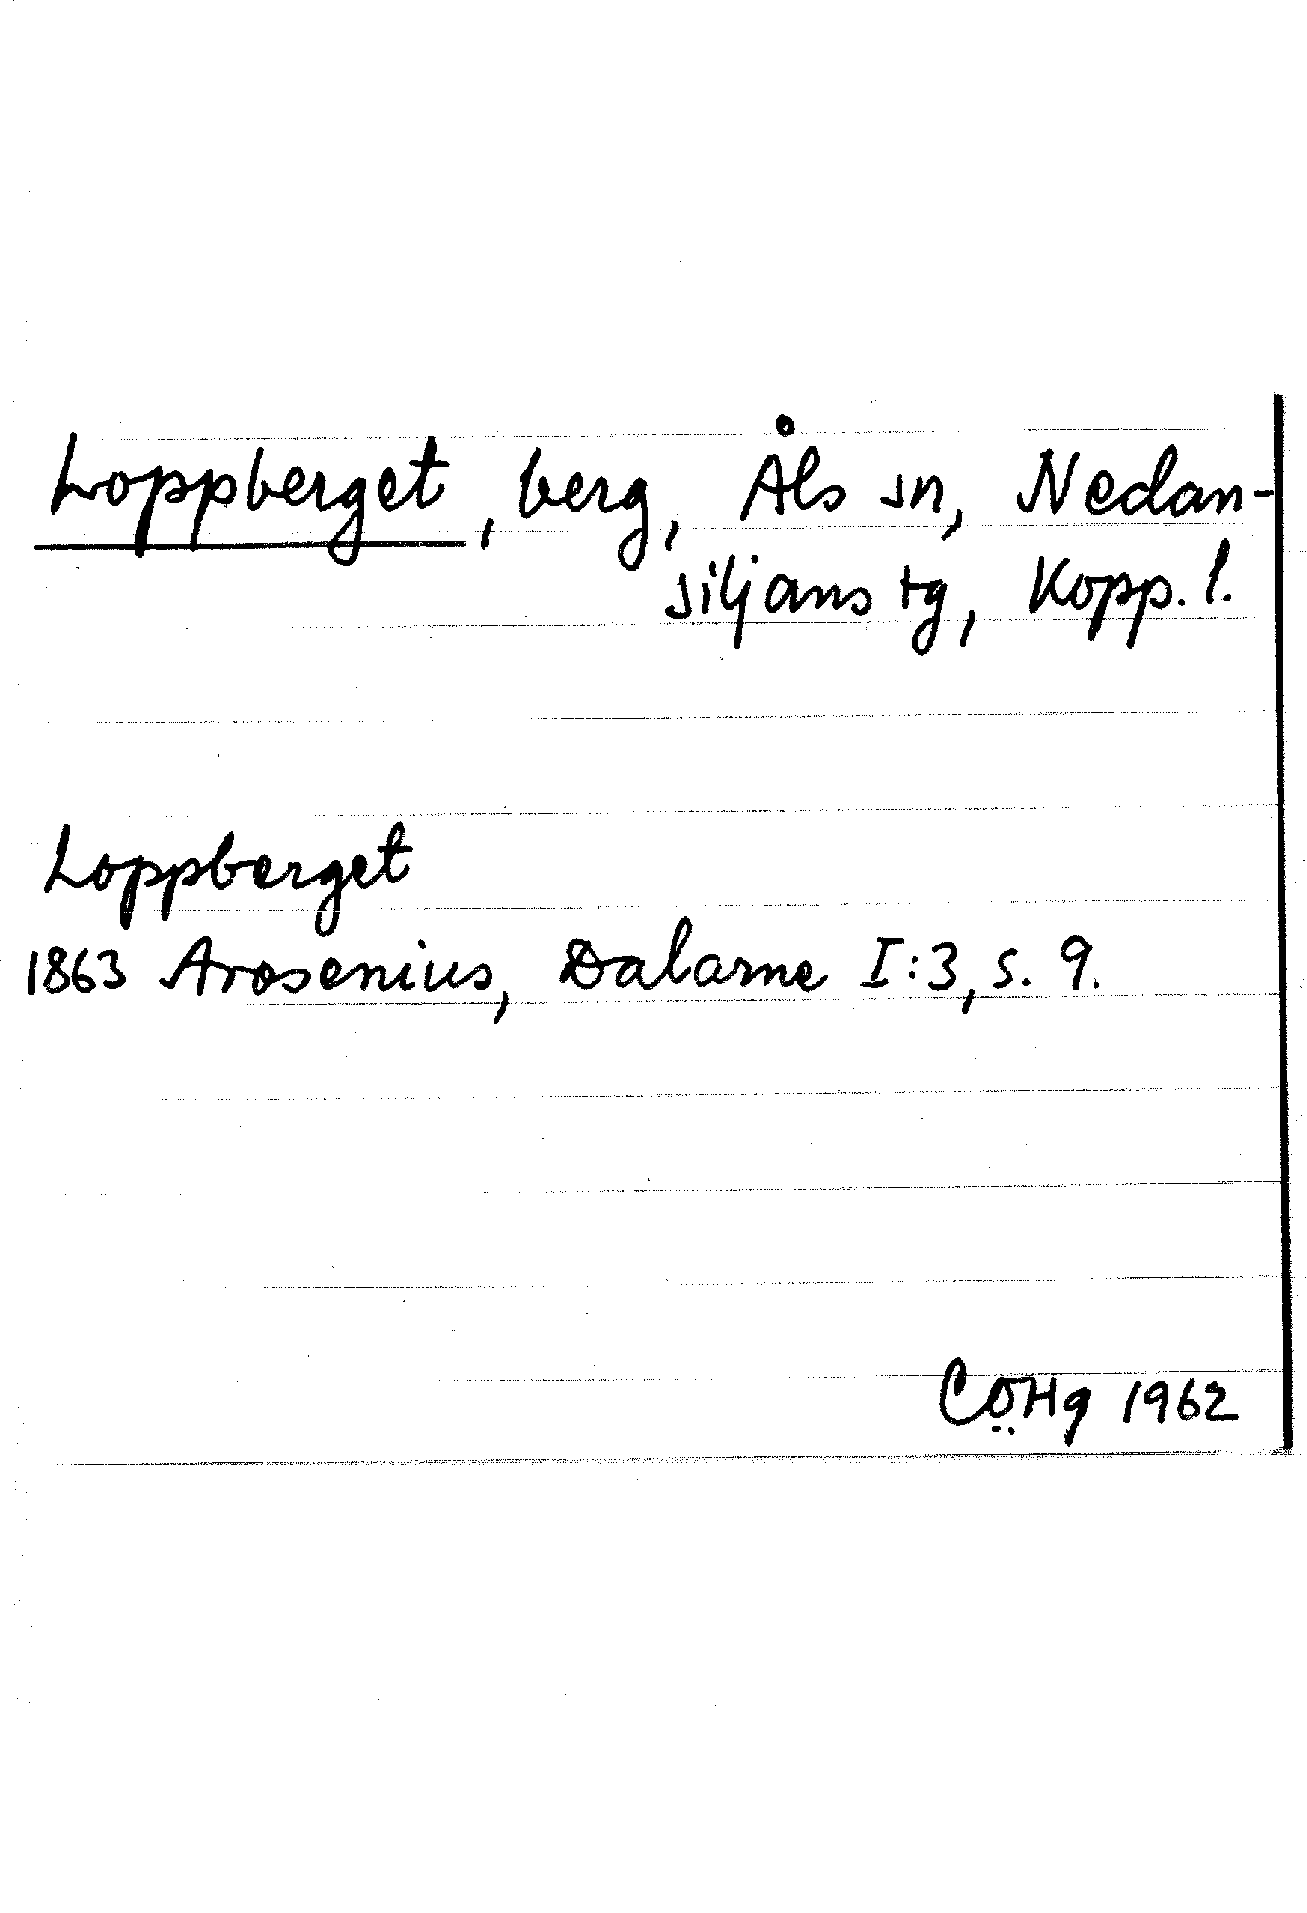 Loppberget, berg, Åls sn, Nedan-
siljans tg, Kopp. l.
Loppberget
1863 Arosenius, Dalarne I:3, s. 9.
CÖHg 1962